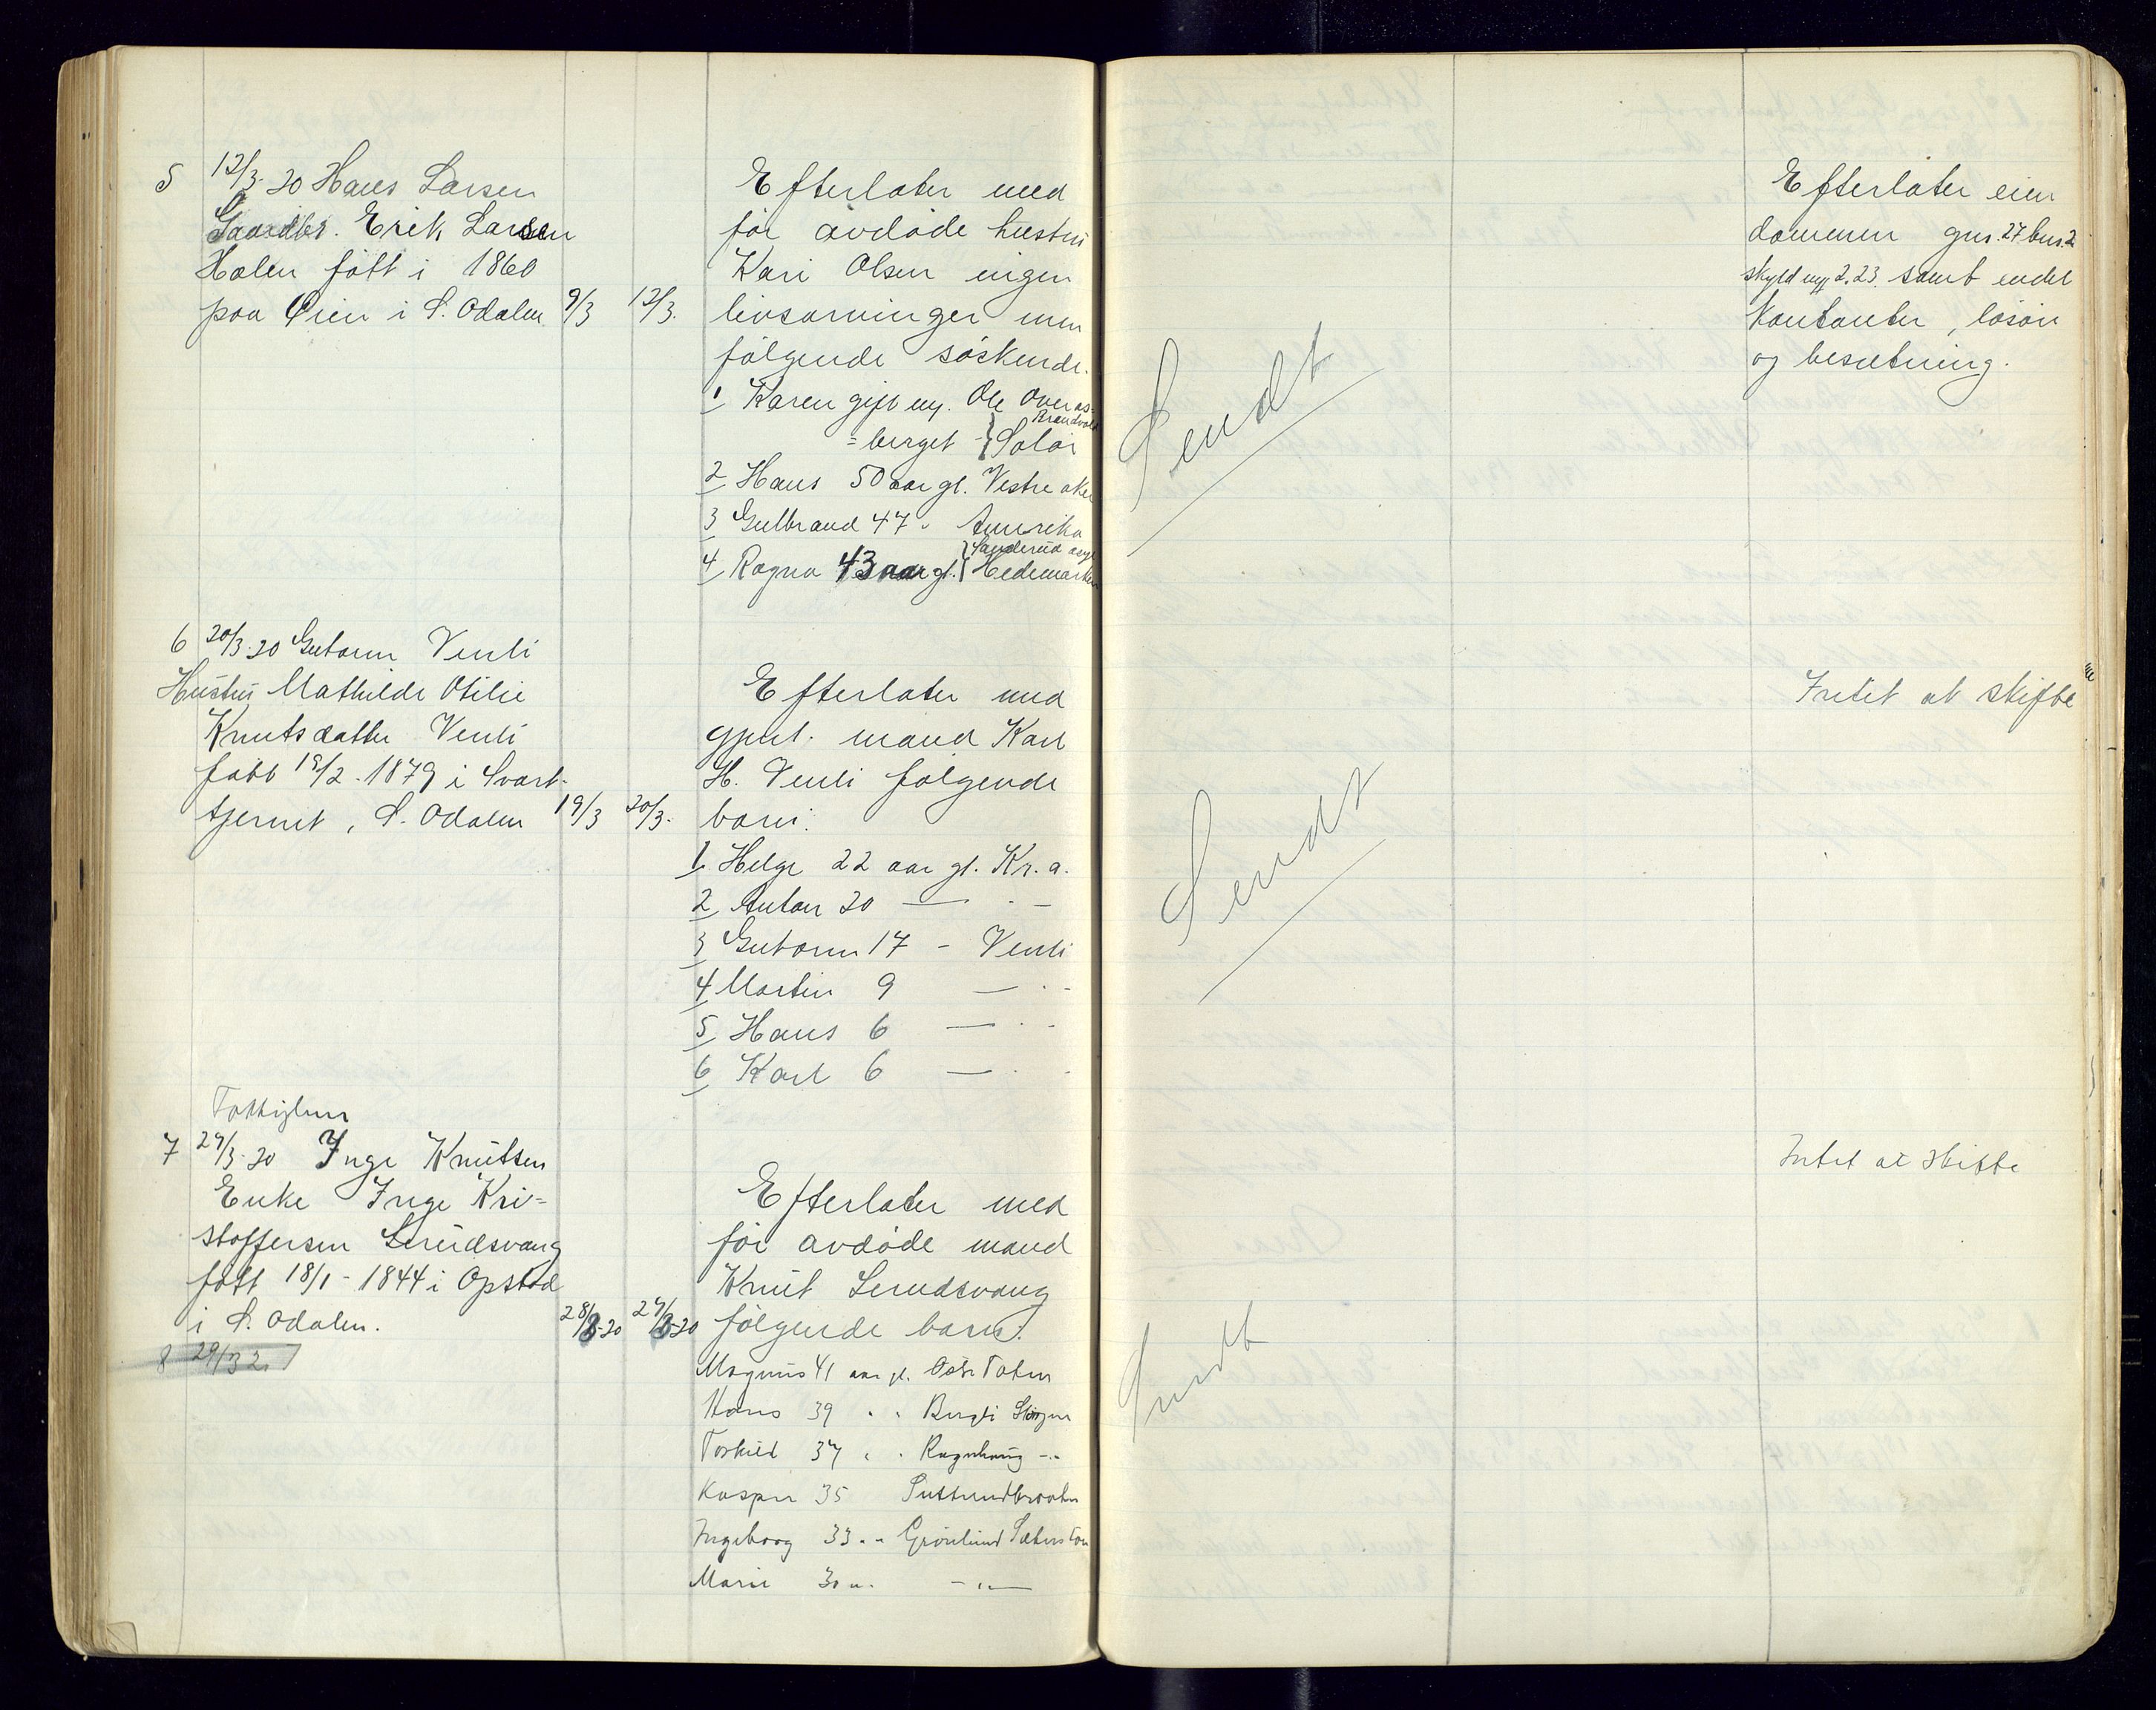 5 12/3-20 Hans Larsen
Gaardbr. Erik Larsen
Holen født i 1860
paa Øien i S. Odalen 9/3 12/3.
Efterlater med
før avdøde hustru
Kari Olsen ingen
livsarvinger men
følgende søskende.
1 Karen gift m. Ole Overas-
Brandvold
=berget } Solør
2 Hans 50 aar gl. Vestre aker
3 Gulbrand 47 " Amerika
Sanderud asyl
4 Ragna 43 aar gl. { Hedemarken
Sendt
Efterlater eien
dommen gnr. 27 bnr. 2
skyld m 2.23. samt endel
Kontanter, løsøre
og besetning.
6 20/3-20 Gutorm Venli
Hustru Mathilde Otilie
Knutsdatter Venli
født 19/2-1879 i Svart-
tjernet, S. Odalen 19/3 20/3.
Efterlater med
gjenl. mand Karl
H. Venli følgende
barn:
1 Helge 22 aar gl. Kr.a.
2 Anton 20 — " —
3 Gutorm 17 - Venli
4 Martin 9 — " -
5 Hans 6 — " -
6 Karl 6 — " -
Sendt
Intet at skifte
Fattiglem
7 29/3-20 Inge Knutsen
Enke Inge Kri=
stoffersen Lerudsvang
født 18/1-1844 i Opstad
i S. Odalen. 28/3-20 29/3-20
8 29/3 2
Efterlater med
før avdøde mand
Knut Lerudsvang
følgende barn:
Magnus 41 aar gl. Østr Toten
Hans 39 " " Bergli
Torkild 37 " " Ragnhaug -"-
Kasper 35
Ingeborg 33 " " Grønlund
Marie 30 " " -"-
Sendt
Intet at skifte